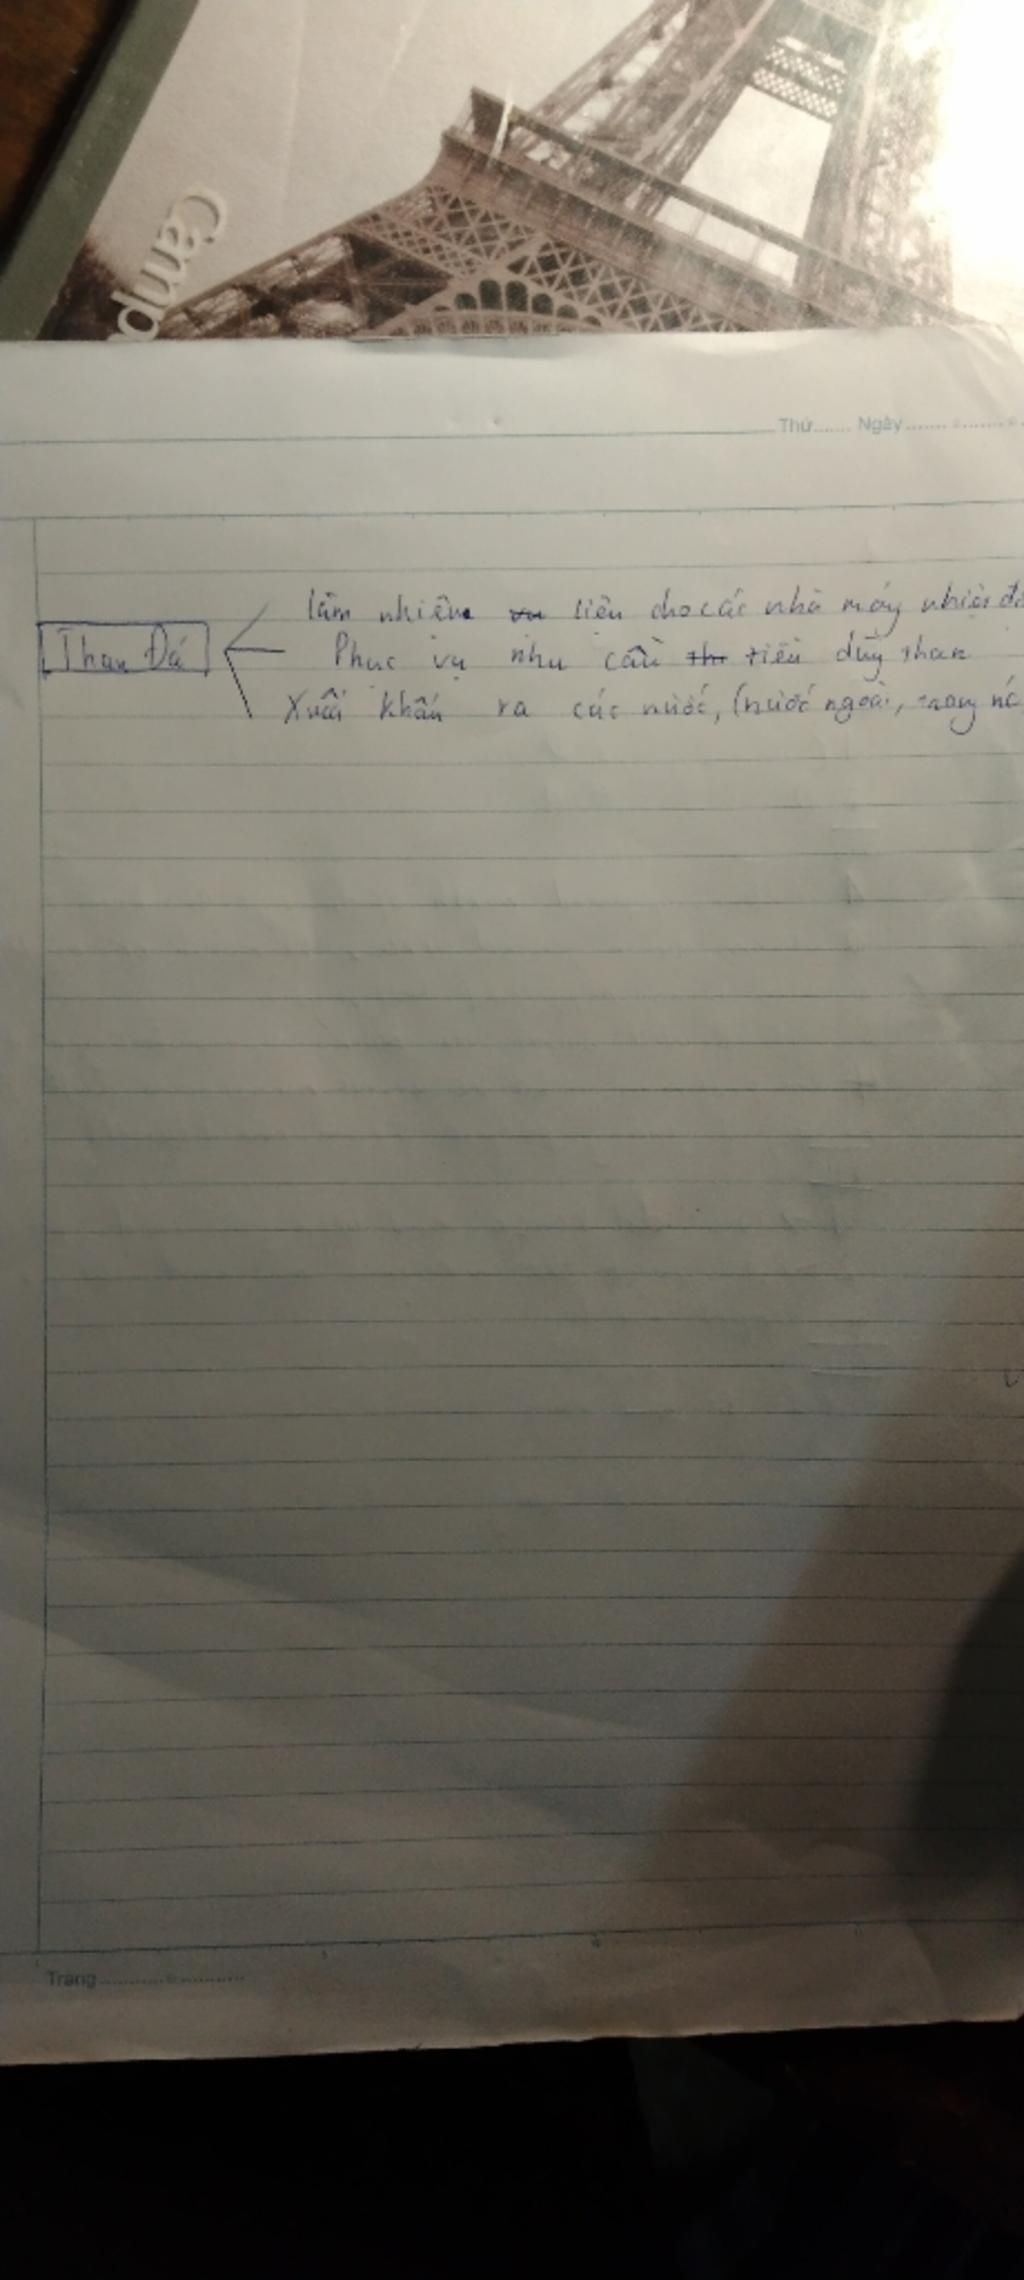 Camp
Thứ...... Ngày
làm nhiên liệu cho các nhà máy nhiệt đ
Than Đá
Phục vụ nhu cầu tiêu dùng than
Xuất khẩu ra các nước, (nước ngoài, trong
Trang